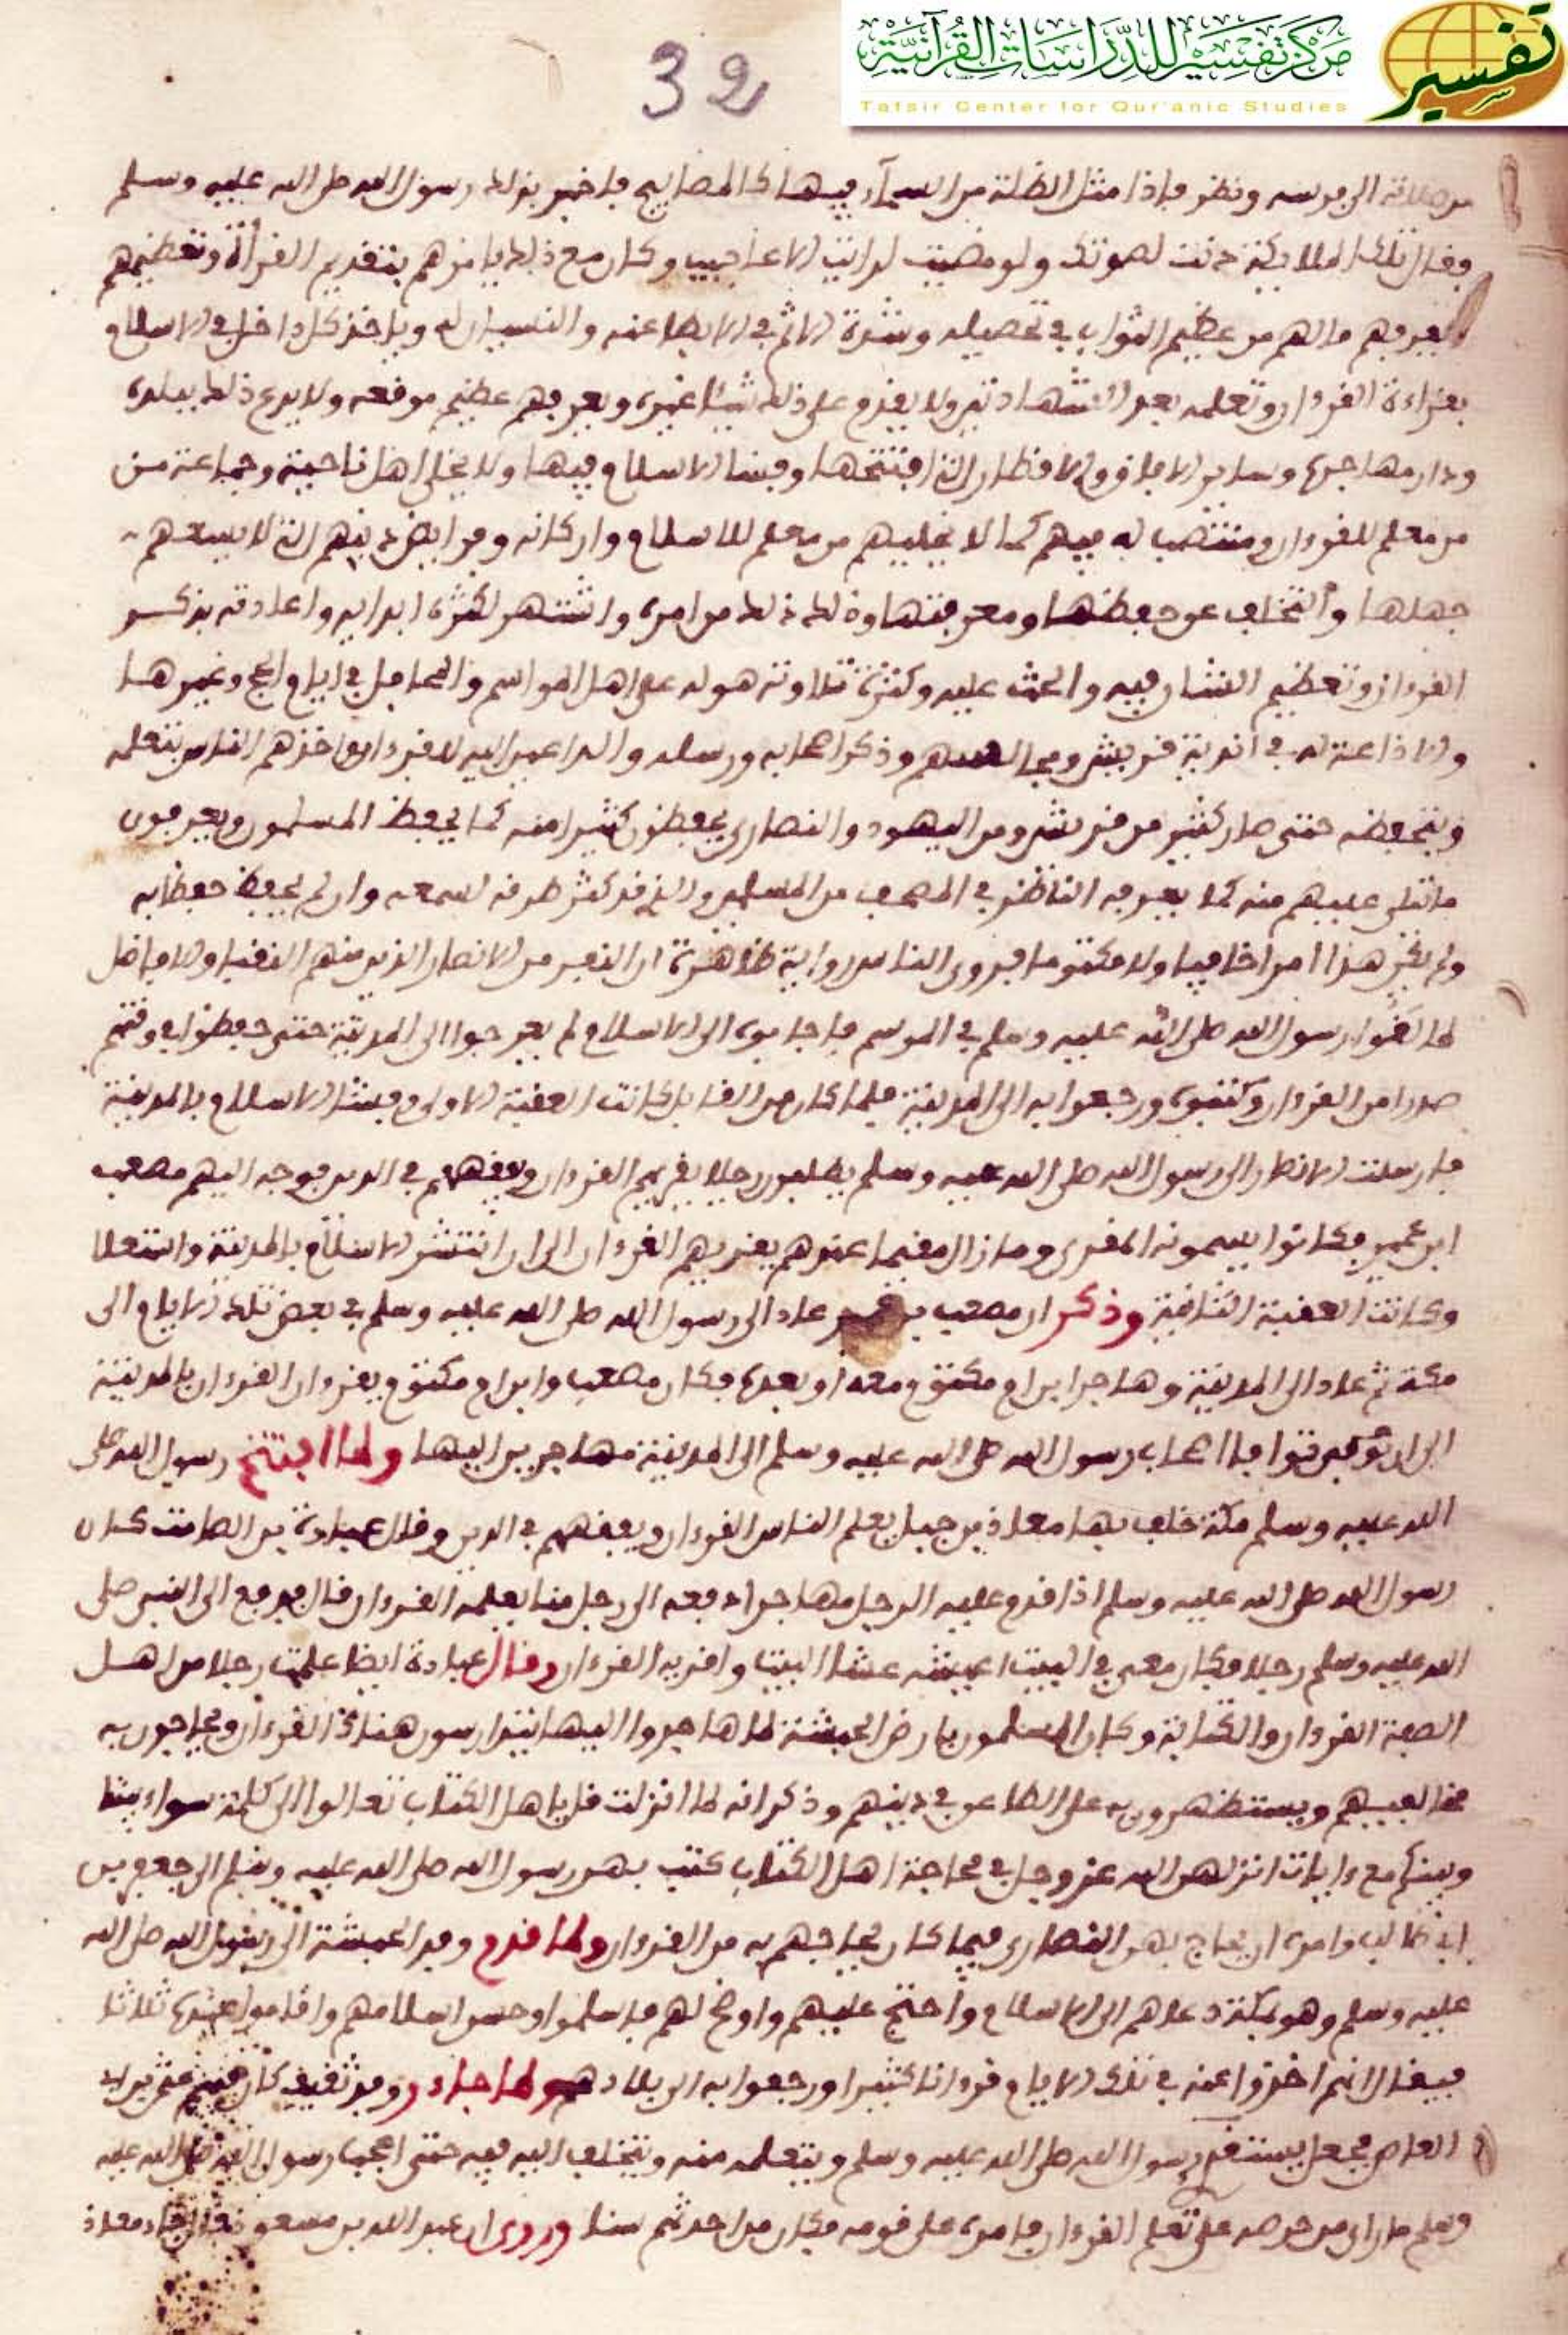 مركز تفسير للدراسات القرآنية
Tafsir Center for Qur'anic Studies
تفسير
32
من صلاته الى فرسه ونظر فإذا مثل الظلة من السماء فيها كالمصابيح فأخبر بذلك رسول الله صلى الله عليه وسلم
فقال تلك الملائكة دنت لصوتك ولو مضيت لرأيت الأعاجيب وكان مع ذلك يأمرهم بتقديم القرأة وتعظيمهم
ويعرفهم مالهم من عظيم الثواب في تحصيله وشدة الاثم في الابطا عنه والنسيان له وياخذ كل داخل في الاسلام
بقراءة القرءان وتعلمه بعد الشهادتين ولا يقدم على ذلك شيئا غيره ويعرفهم عظيم موقعه ولا يدع ذلك ببلده
ودار مهاجره وساير الافاق والاقطار التي افتتحها وفشا الاسلام فيها ولا يخلي اهل ناحية وجماعة من
من معلم للقرءان ومنتصب له فيهم كما لا يخليهم من معلم للاسلام واركانه وفرايض دينهم التي لا يسعهم
جهلها والتخلف عن حفظها ومعرفتها وذلك من امره واشتهر لكثرة ابدايه واعادته بذكر
القرءان وتعظيم الشان فيه والحث عليه وكثرة تلاوته هو له على اهل المواسم والمحافل في ايام الحج وغيرها
والاذاعة له في اندية قريش ومجالسهم وذكر اصحابه ورسله والداعين اليه للقرءان واخذهم الناس بتعلمه
وبتحفظه حتى صار كثير من قريش ومن اليهود والنصارى يحفظون كثيرا منه كما يحفظ المسلمون ويعرفون
ما تلي عليهم منه كما يعرفه الناظر في المصحف من المسلمين والذي قد كثر طرقه لسمعه وان لم يحفظ حفظا به
ولم يكن هذا امرا خافيا ولا مكتوما فروى الناس رواية ظاهرة ان النفر من الانصار الذين منهم النقبا والافاضل
لما لقوا رسول الله صلى الله عليه وسلم في الموسم فاجابوه الى الاسلام لم يخرجوا الى المدينة حتى حفظوا في وقتهم
صدرا من القرءان وكتبوه ورجعوا به الى المدينة فلما كان من القابل كانت العقبة الاولى وفشا الاسلام بالمدينة
فارسلت الانصار الى رسول الله صلى الله عليه وسلم يطلبون رجلا يقريهم القرءان ويفقههم في الدين فوجه اليهم مصعب
ابن عمير فكانوا يسمونه المقري وما زال مقيما عندهم يقريهم القرءان الى ان انتشر الاسلام بالمدينة واستعلا
وكانت العقبة الثانية وذكر ان مصعب بن عمير عاد الى رسول الله صلى الله عليه وسلم في بعض تلك الايام الى
مكة ثم عاد الى المدينة وهاجر ابن ام مكتوم معه او بعده فكان مصعب وابن ام مكتوم يقرءان القرءان بالمدينة
الى ان توفرتوا فاصحاب رسول الله صلى الله عليه وسلم الى المدينة مهاجرين اليها ولما افتتح رسول الله صلى
الله عليه وسلم مكة خلف بها معاذ بن جبل يعلم الناس القرءان ويفقههم في الدين وقال عبادة بن الصامت كان
رسول الله صلى الله عليه وسلم اذا قدم عليه الرجل مهاجرا دفعه الى رجل منا يعلمه القرءان قال فدفع الى النبي صلى
الله عليه وسلم رجلا فكان معي في البيت اعيشه عشا البيت واقريه القرءان وقال عبادة ايضا علمت رجلا من اهل
الصفة القرءان والكتابة وكان المسلمون بارض الحبشة لما هاجروا اليها يتدارسون هناك القرءان ويحاجون به
مخالفيهم ويستظهرون به على الطاعن في دينهم وذكر انه لما انزلت قل ياهل الكتاب تعالوا الى كلمة سواء بيننا
وبينكم مع ءايات انزلهن الله عز وجل في محاجة اهل الكتاب كتب بهن رسول الله صلى الله عليه وسلم الى جعفر بن
ابي طالب وامره ان يحاج بهن النصارى فيما كان يحاجهم به من القرءان ولما قدم وفد الحبشة الى رسول الله صلى الله
عليه وسلم وهو بمكة دعاهم الى الاسلام واحتج عليهم واوضح لهم فاسلموا وحسن اسلامهم واقاموا عنده ثلاثا
فيقال انهم اخذوا عنه في تلك الايام قرءانا كثيرا ورجعوا به الى بلادهم ولما جاء وفد ثقيف كان فيهم عثمن بن ابي
العاص فجعل يستقري رسول الله صلى الله عليه وسلم ويتعلمه منه ويختلف اليه فيه حتى اعجب رسول الله صلى الله عليه
وسلم ما راى من حرصه على تعلم القرءان فامره على قومه فكان من احدثهم سنا وروى ان عبد الله بن مسعود